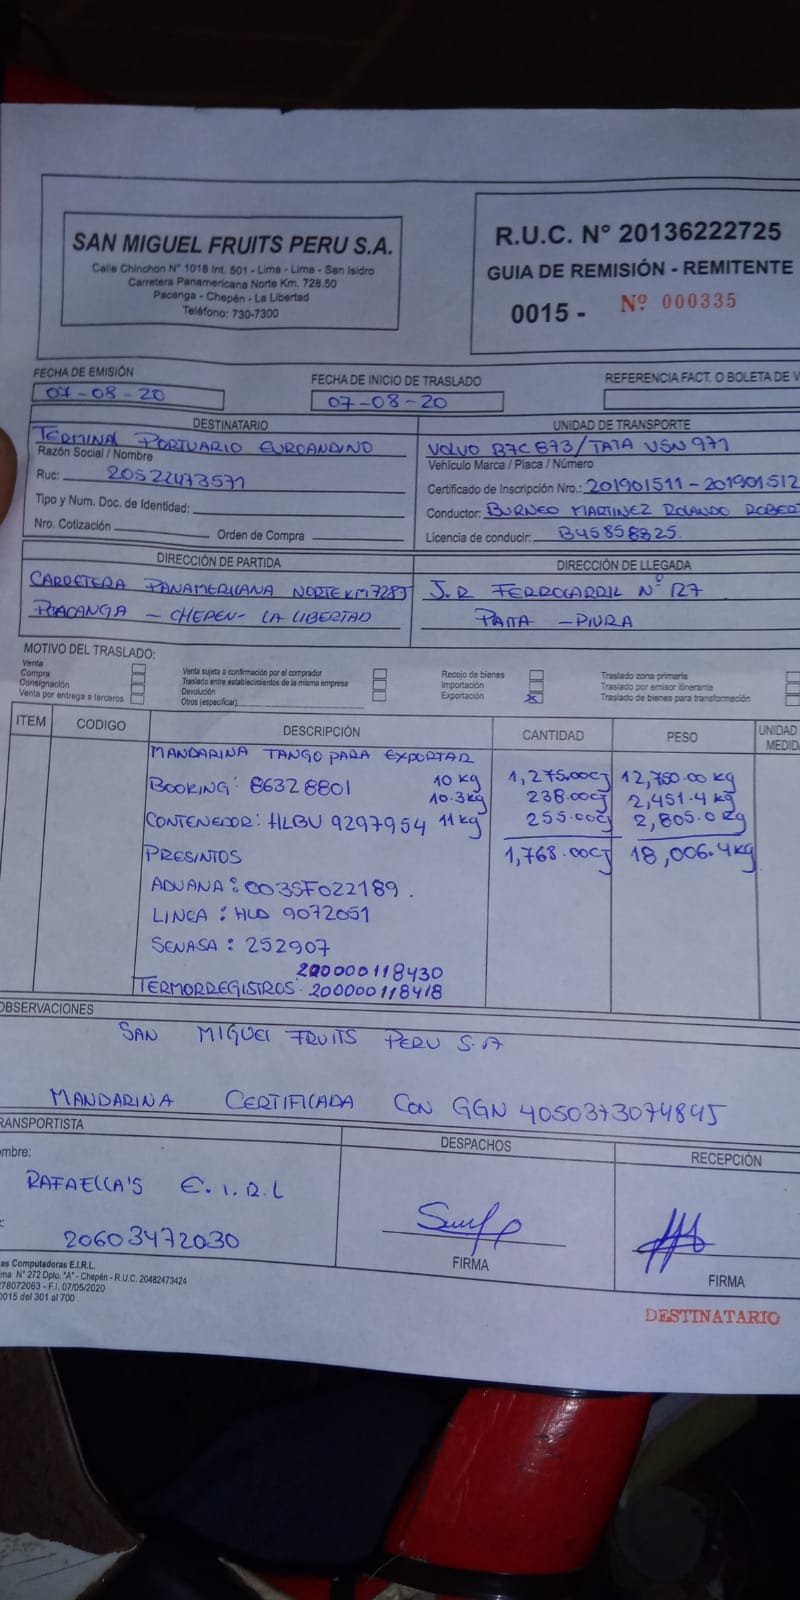 SAN MIGUEL FRUITS PERU S.A.
Calle Chinchon N° 1018 Int. 501 - Lima - Lima - San Isidro
Carretera Panamericana Norte Km. 728.50
Pacanga - Chepén - La Libertad
Teléfono: 730-7300
R.U.C. N° 20136222725
GUIA DE REMISIÓN - REMITENTE
0015 - Nº 000335
FECHA DE EMISIÓN
07-08-20
FECHA DE INICIO DE TRASLADO
07-08-20
REFERENCIA FACT. O BOLETA DE V
DESTINATARIO
TERMINAL PORTUARIO EUROANDINO
Razón Social / Nombre
Ruc: 20522473571
Tipo y Num. Doc. de Identidad:
Nro. Cotización Orden de Compra
UNIDAD DE TRANSPORTE
VOLVO B7C 873/TATA VSN 971
Vehículo Marca / Placa / Número
Certificado de Inscripción Nro.: 201901511-201901512
Conductor: BURNEO MARTINEZ ROLANDO ROBERT
Licencia de conducir: B45858825.
DIRECCIÓN DE PARTIDA
CARRETERA PANAMERICANA NORTE KM 7285
PACANGA - CHEPEN - LA LIBERTAD
DIRECCIÓN DE LLEGADA
J.R FERROCARRIL N° 127
PAITA - PIURA
MOTIVO DEL TRASLADO:
Venta
Compra
Consignación
Venta por entrega a terceros
Venta sujeta a confirmación por el comprador
Traslado entre establecimientos de la misma empresa
Devolución
Otros (especificar)
Recojo de bienes
Importación
Exportación X
Traslado zona primaria
Traslado por emisor itinerante
Traslado de bienes para transformación
ITEM CODIGO DESCRIPCIÓN CANTIDAD PESO UNIDAD MEDID
MANDARINA TANGO PARA EXPORTAR
BOOKING: 86328801 10 kg 1,275.00CJ 12,750.00 kg
10.3kg 238.00CJ 2,451.4 kg
CONTENEDOR: HLBU 9297954 11 kg 255.00CJ 2,805.0 kg
PRESINTOS 1,768.00CJ 18,006.4kg
ADUANA: 003SF022189.
LINEA: HLD 9072051
SENASA: 252907
200000118430
TERMORREGISTROS: 200000118418
OBSERVACIONES
SAN MIGUEL FRUITS PERU S.A
MANDARINA CERTIFICADA CON GGN 4050373074845
RANSPORTISTA
ombre:
RAFAELLA'S E.I.R.L
20603472030
DESPACHOS
FIRMA
RECEPCIÓN
FIRMA
as Computadoras E.I.R.L.
ma N° 272 Dpto. "A" - Chepén - R.U.C. 20482473424
278072063 - F.I. 07/05/2020
0015 del 301 al 700
DESTINATARIO